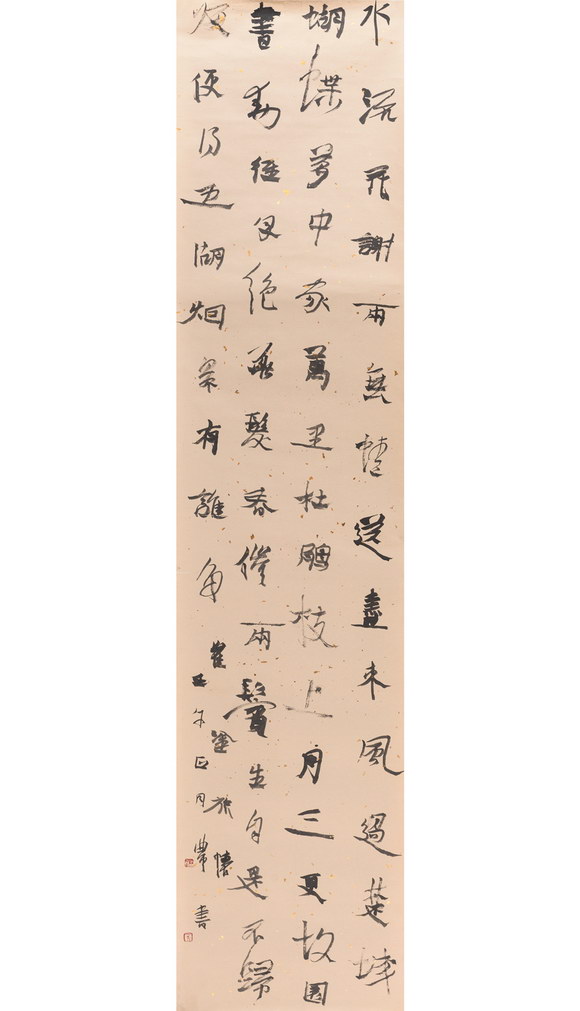 水流花謝兩無情送盡東風過楚城
蝴蝶夢中家萬里杜鵑枝上月三更故園
書動經年絕華髮春催兩鬢生自是不歸
歸便得五湖烟景有誰爭
崔塗旅懷
午正月書